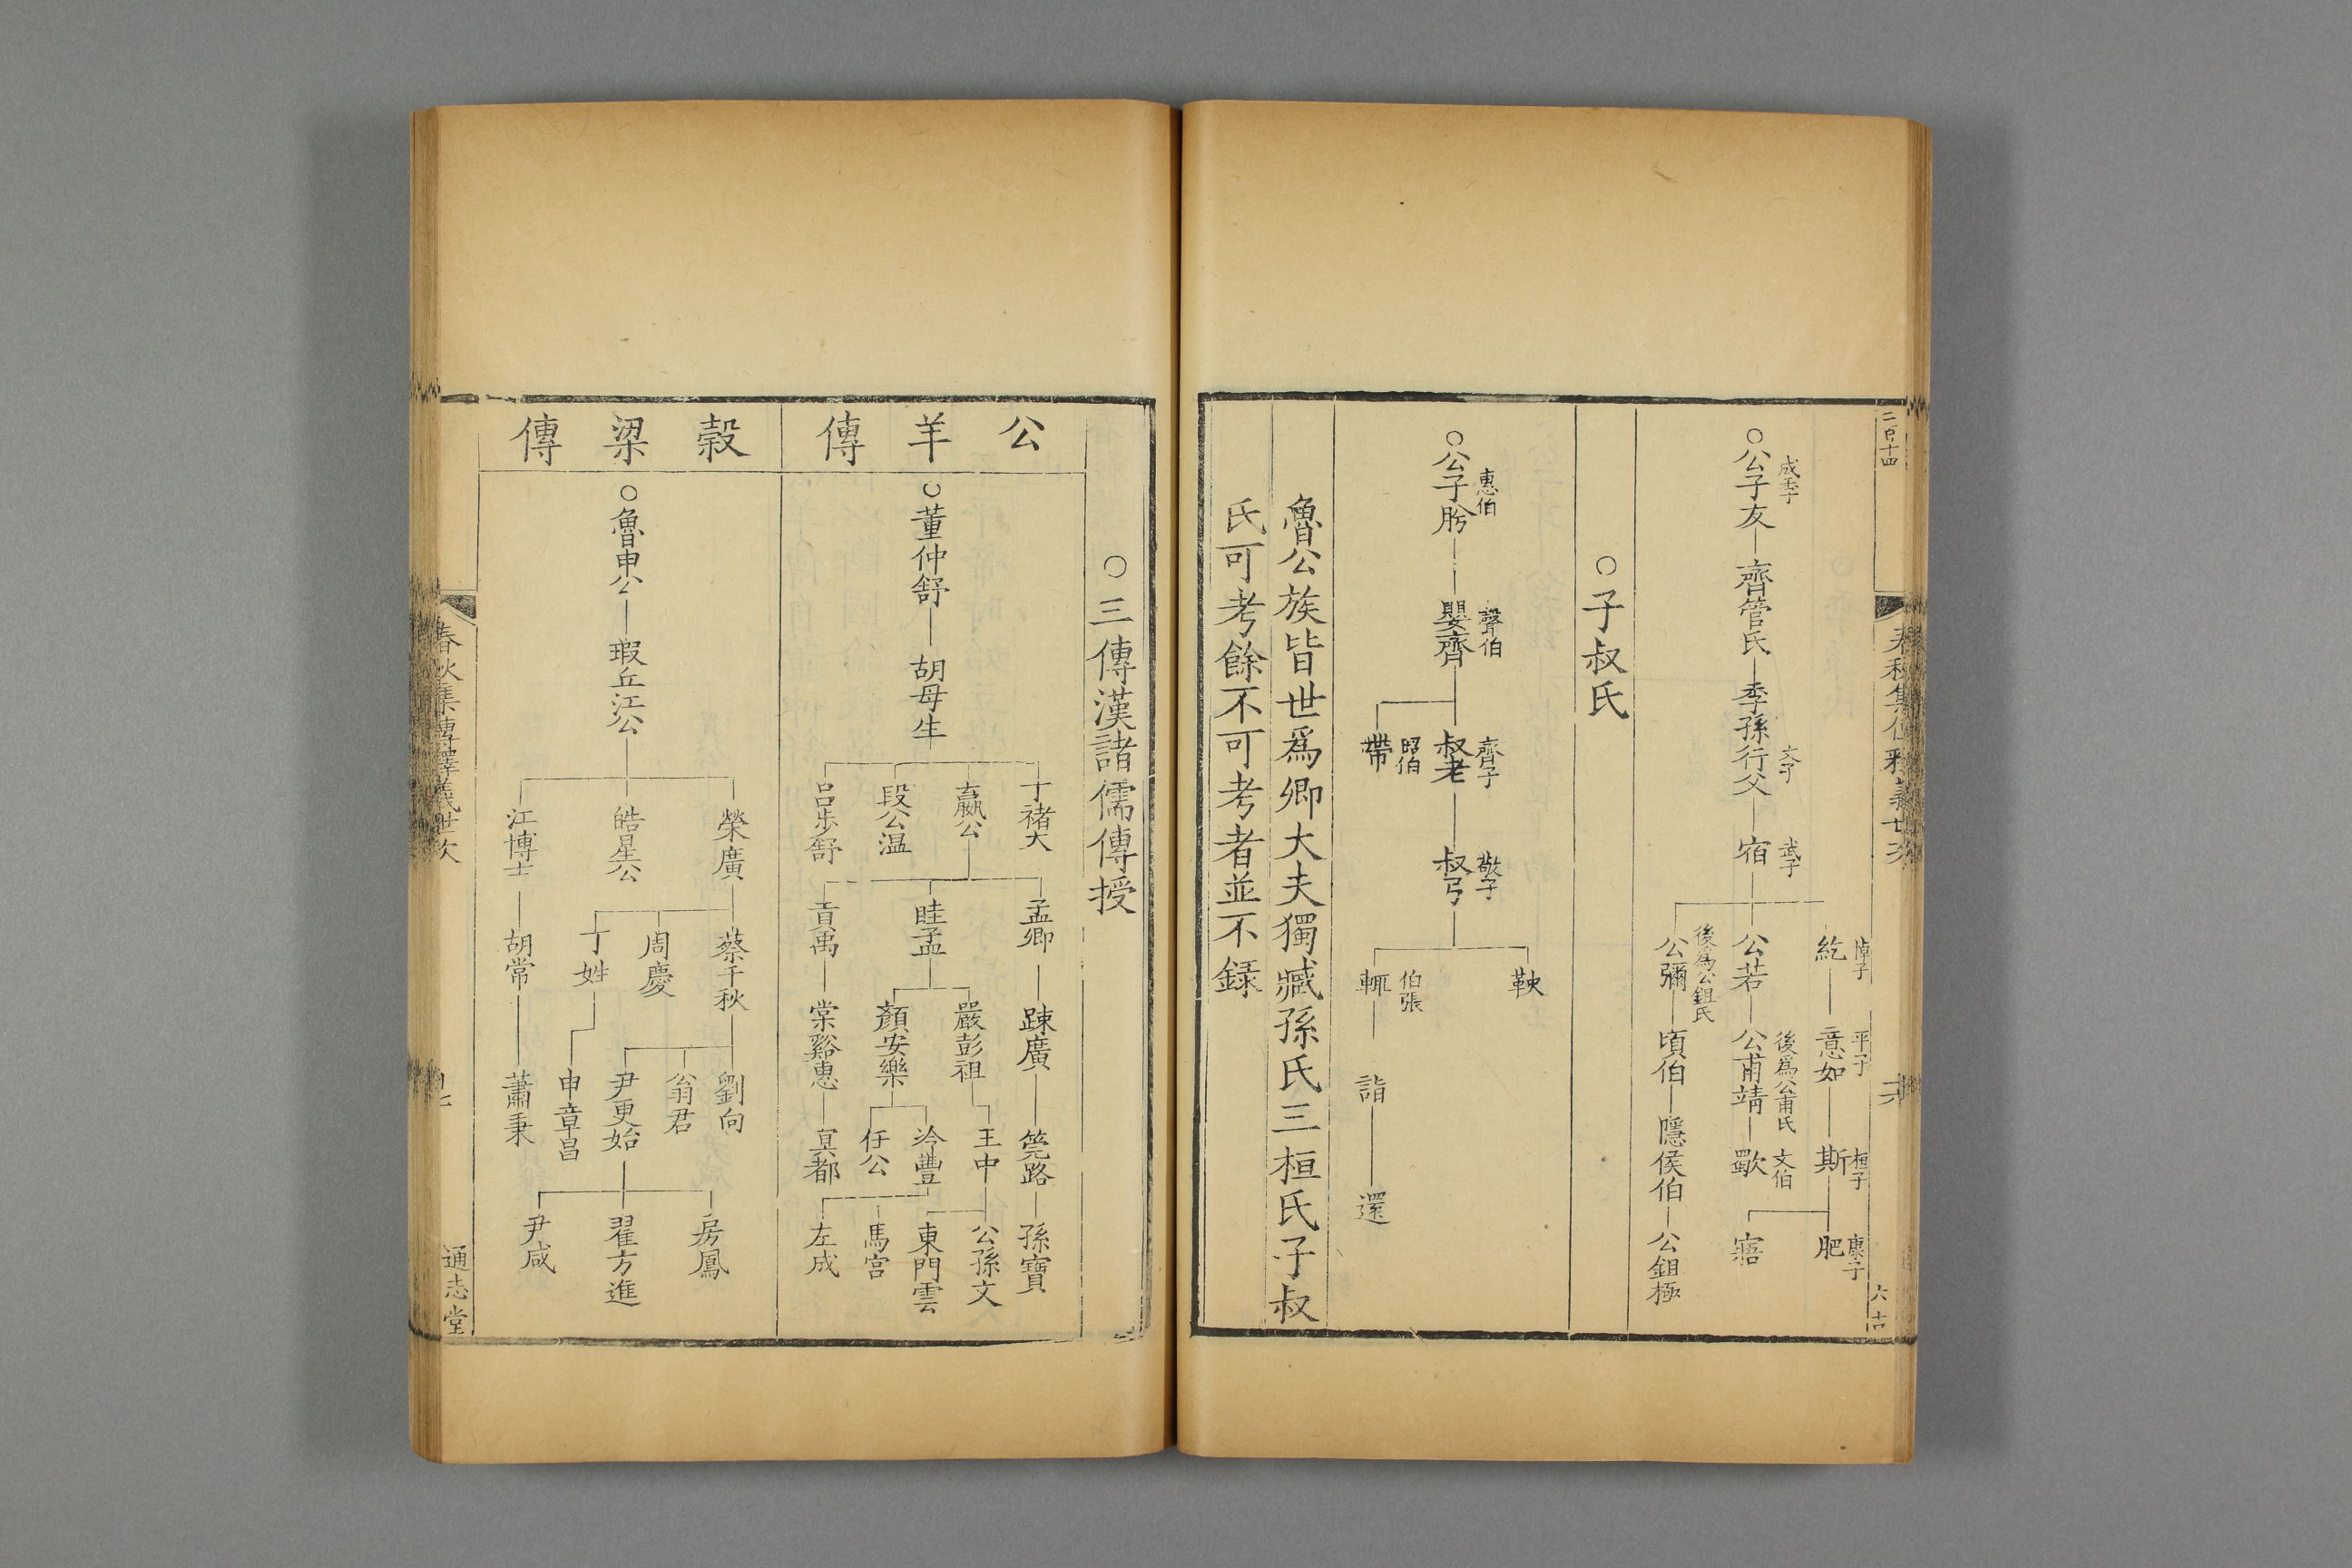 二百十四
春秋集傳釋義世次
六十
悼子
紇
平子
意如
桓子
斯
康子
肥
成季子
公子友
齊管氏
文子
季孫行父
武子
宿
公若
後爲公甫氏
公甫靖
文伯
歜
寤
後爲公鉏氏
公彌
頃伯
隱侯伯
公鉏極
子叔氏
惠伯
公子肸
聲伯
嬰齊
齊子
叔老
敬子
叔弓
昭伯
帶
鞅
伯張
輒
詣
還
魯公族皆世爲卿大夫獨臧孫氏三桓氏子叔
氏可考餘不可考者並不録
三傳漢諸儒傳授
公羊傳
董仲舒
胡母生
褚大
嬴公
段公温
呂步舒
孟卿
眭孟
貢禹
踈廣
嚴彭祖
顏安樂
棠谿惠
筦路
王中
冷豐
任公
冥都
孫寶
公孫文
東門雲
馬宮
左咸
榖梁傳
魯申公
瑕丘江公
榮廣
皓星公
江博士
蔡千秋
周慶
丁姓
胡常
劉向
翁君
尹更始
申章昌
蕭秉
房鳳
翟方進
尹咸
春秋集傳釋義世次
通志堂